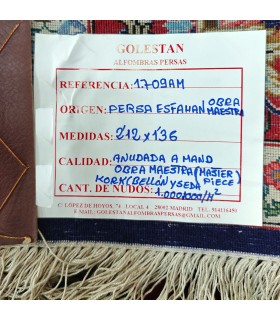 GOLESTAN
ALFOMBRAS PERSAS
REFERENCIA: 1709AM
ORIGEN: PERSA ESFAHAN OBRA MAESTRA
MEDIDAS: 2'12 x 1'36
CALIDAD: ANUDADA A MANO
OBRA MAESTRA (MASTER PIECE)
KORK (BELLÓN Y SEDA
CANT. DE NUDOS: 1.000.000/M²
C. LÓPEZ DE HOYOS, 74 LOCAL 4 28002 MADRID
E-MAIL: GOLESTANALFOMBRASPERSAS@GMAIL.COM